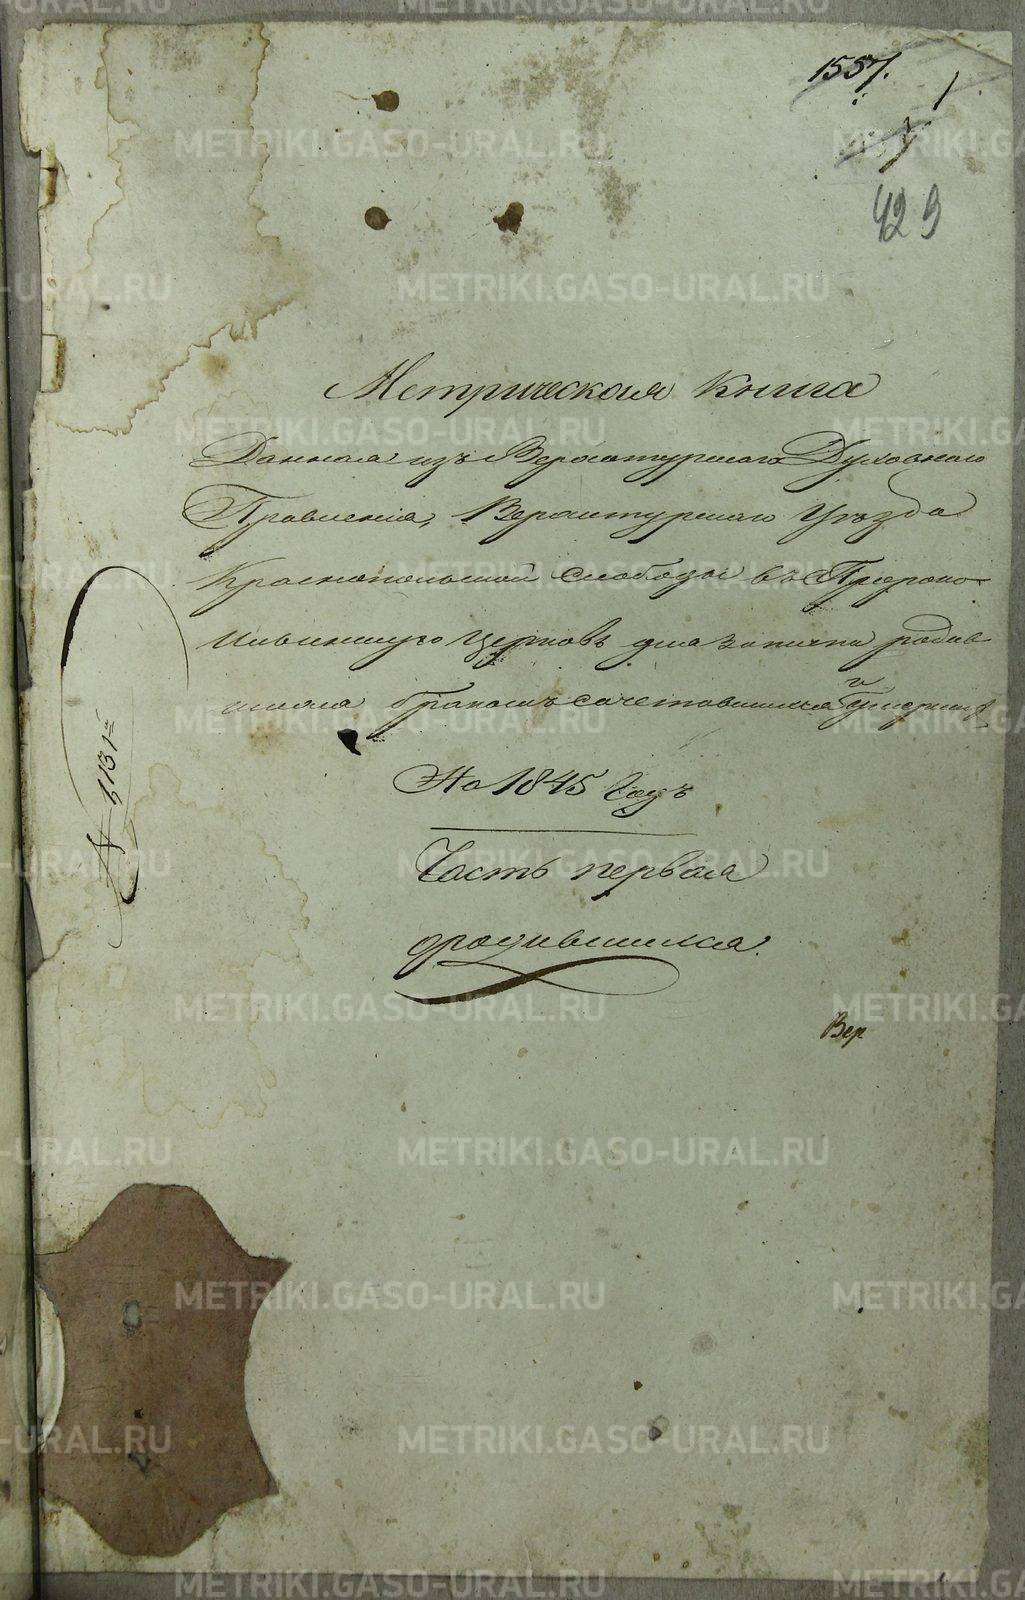 1557.
1
7
429
Метрическая Книга
Данная изъ Верхотурскаго Духовнаго
Правленія, Верхотурскаго Уѣзда
Краснопольской слободы въ Пророко-
Ильинскую церковь для записки родив
шихся бракомъ сочетавшихся и умершихъ
На 1845 Годъ
Часть первая
о родившихся.
Вер
№ 1131й
METRIKI.GASO-URAL.RU